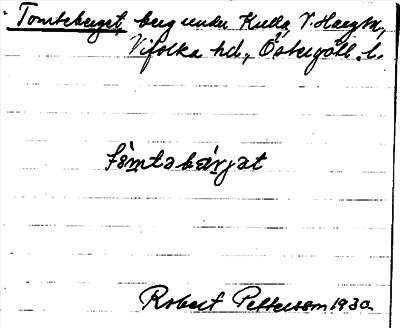 Tomteberget, berg under Kulla, V. Harg sn,
Vifolka hd., Östergötl. l.
tòmtabárjat
Robert Pettersson 1930